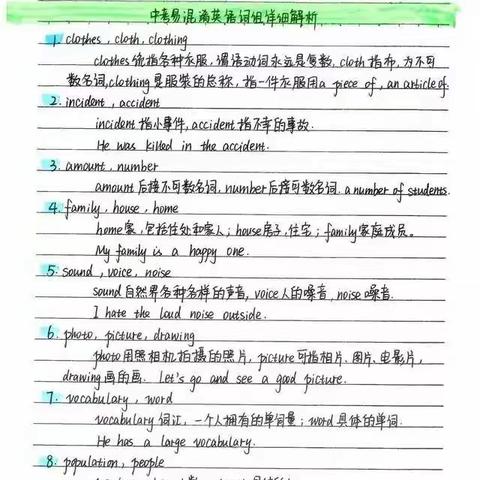 中考易混淆英语词组详细解析
1. clothes, cloth, clothing
clothes 统指各种衣服,谓语动词永远是复数, cloth 指布,为不可
数名词, clothing 是服装的总称,指一件衣服用 a piece of, an article of.
2. incident, accident
incident 指小事件, accident 指不幸的事故.
He was killed in the accident.
3. amount, number
amount 后接不可数名词, number 后接可数名词. a number of students.
4. family, house, home
home 家,包括住处和家人; house 房子,住宅; family 家庭成员.
My family is a happy one.
5. sound, voice, noise
sound 自然界各种各样的声音, voice 人的嗓音, noise 噪音.
I hate the loud noise outside.
6. photo, picture, drawing
photo 用照相机拍摄的照片, picture 可指相片、图片、电影片,
drawing 画的画. Let's go and see a good picture.
7. vocabulary, word
vocabulary 词汇,一个人拥有的单词量; word 具体的单词.
He has a large vocabulary.
8. population, people